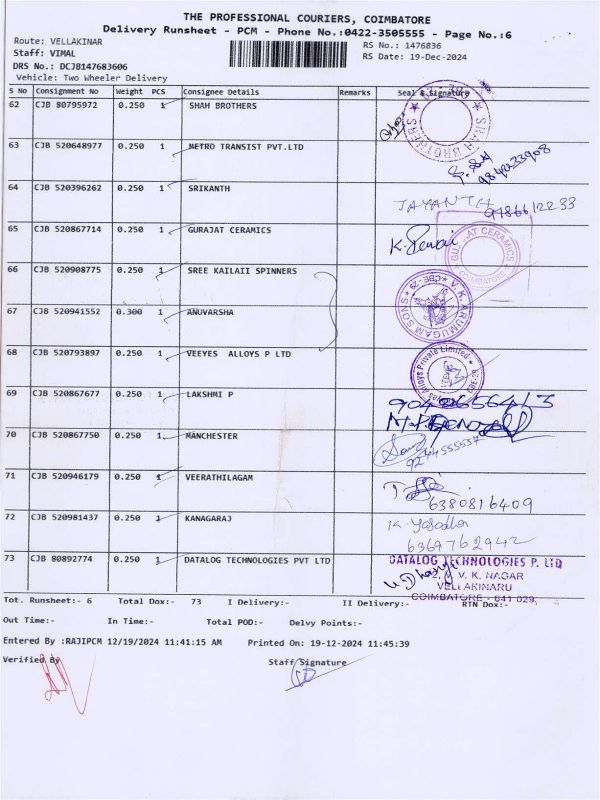 THE PROFESSIONAL COURIERS, COIMBATORE
Delivery Runsheet - PCM - Phone No.:0422-3505555 - Page No.:6
Route: VELLAKINAR RS No.: 1476836
Staff: VIMAL RS Date: 19-Dec-2024
DRS No.: DCJB147683606
Vehicle: Two Wheeler Delivery
S No Consignment No Weight PCS Consignee Details Remarks Seal & Signature
62 CJB 80795972 0.250 1 SHAH BROTHERS SHAH BROTHERS
63 CJB 520648977 0.250 1 METRO TRANSIST PVT.LTD
64 CJB 520396262 0.250 1 SRIKANTH JAYANTH 9786612233
65 CJB 520867714 0.250 1 GURAJAT CERAMICS GUJRAT CERAMICS COIMBATORE
66 CJB 520908775 0.250 1 SREE KAILAII SPINNERS V. K. ARUMUGAM SONS CBE-29
67 CJB 520941552 0.300 1 ANUVARSHA
68 CJB 520793897 0.250 1 VEEYES ALLOYS P LTD Alloys Private Limited
69 CJB 520867677 0.250 1 LAKSHMI P
70 CJB 520867750 0.250 1 MANCHESTER
71 CJB 520946179 0.250 1 VEERATHILAGAM 6380816409
72 CJB 520981437 0.250 1 KANAGARAJ K. Yasodha
6369762942
73 CJB 80892774 0.250 1 DATALOG TECHNOLOGIES PVT LTD DATALOG TECHNOLOGIES P. LTD
V. K. NAGAR
VELLAKINARU
COIMBATORE - 641 029.
Tot. Runsheet:- 6 Total Dox:- 73 I Delivery:- II Delivery:- RTN Dox:-
Out Time:- In Time:- Total POD:- Delvy Points:-
Entered By :RAJIPCM 12/19/2024 11:41:15 AM Printed On: 19-12-2024 11:45:39
Verified By Staff Signature